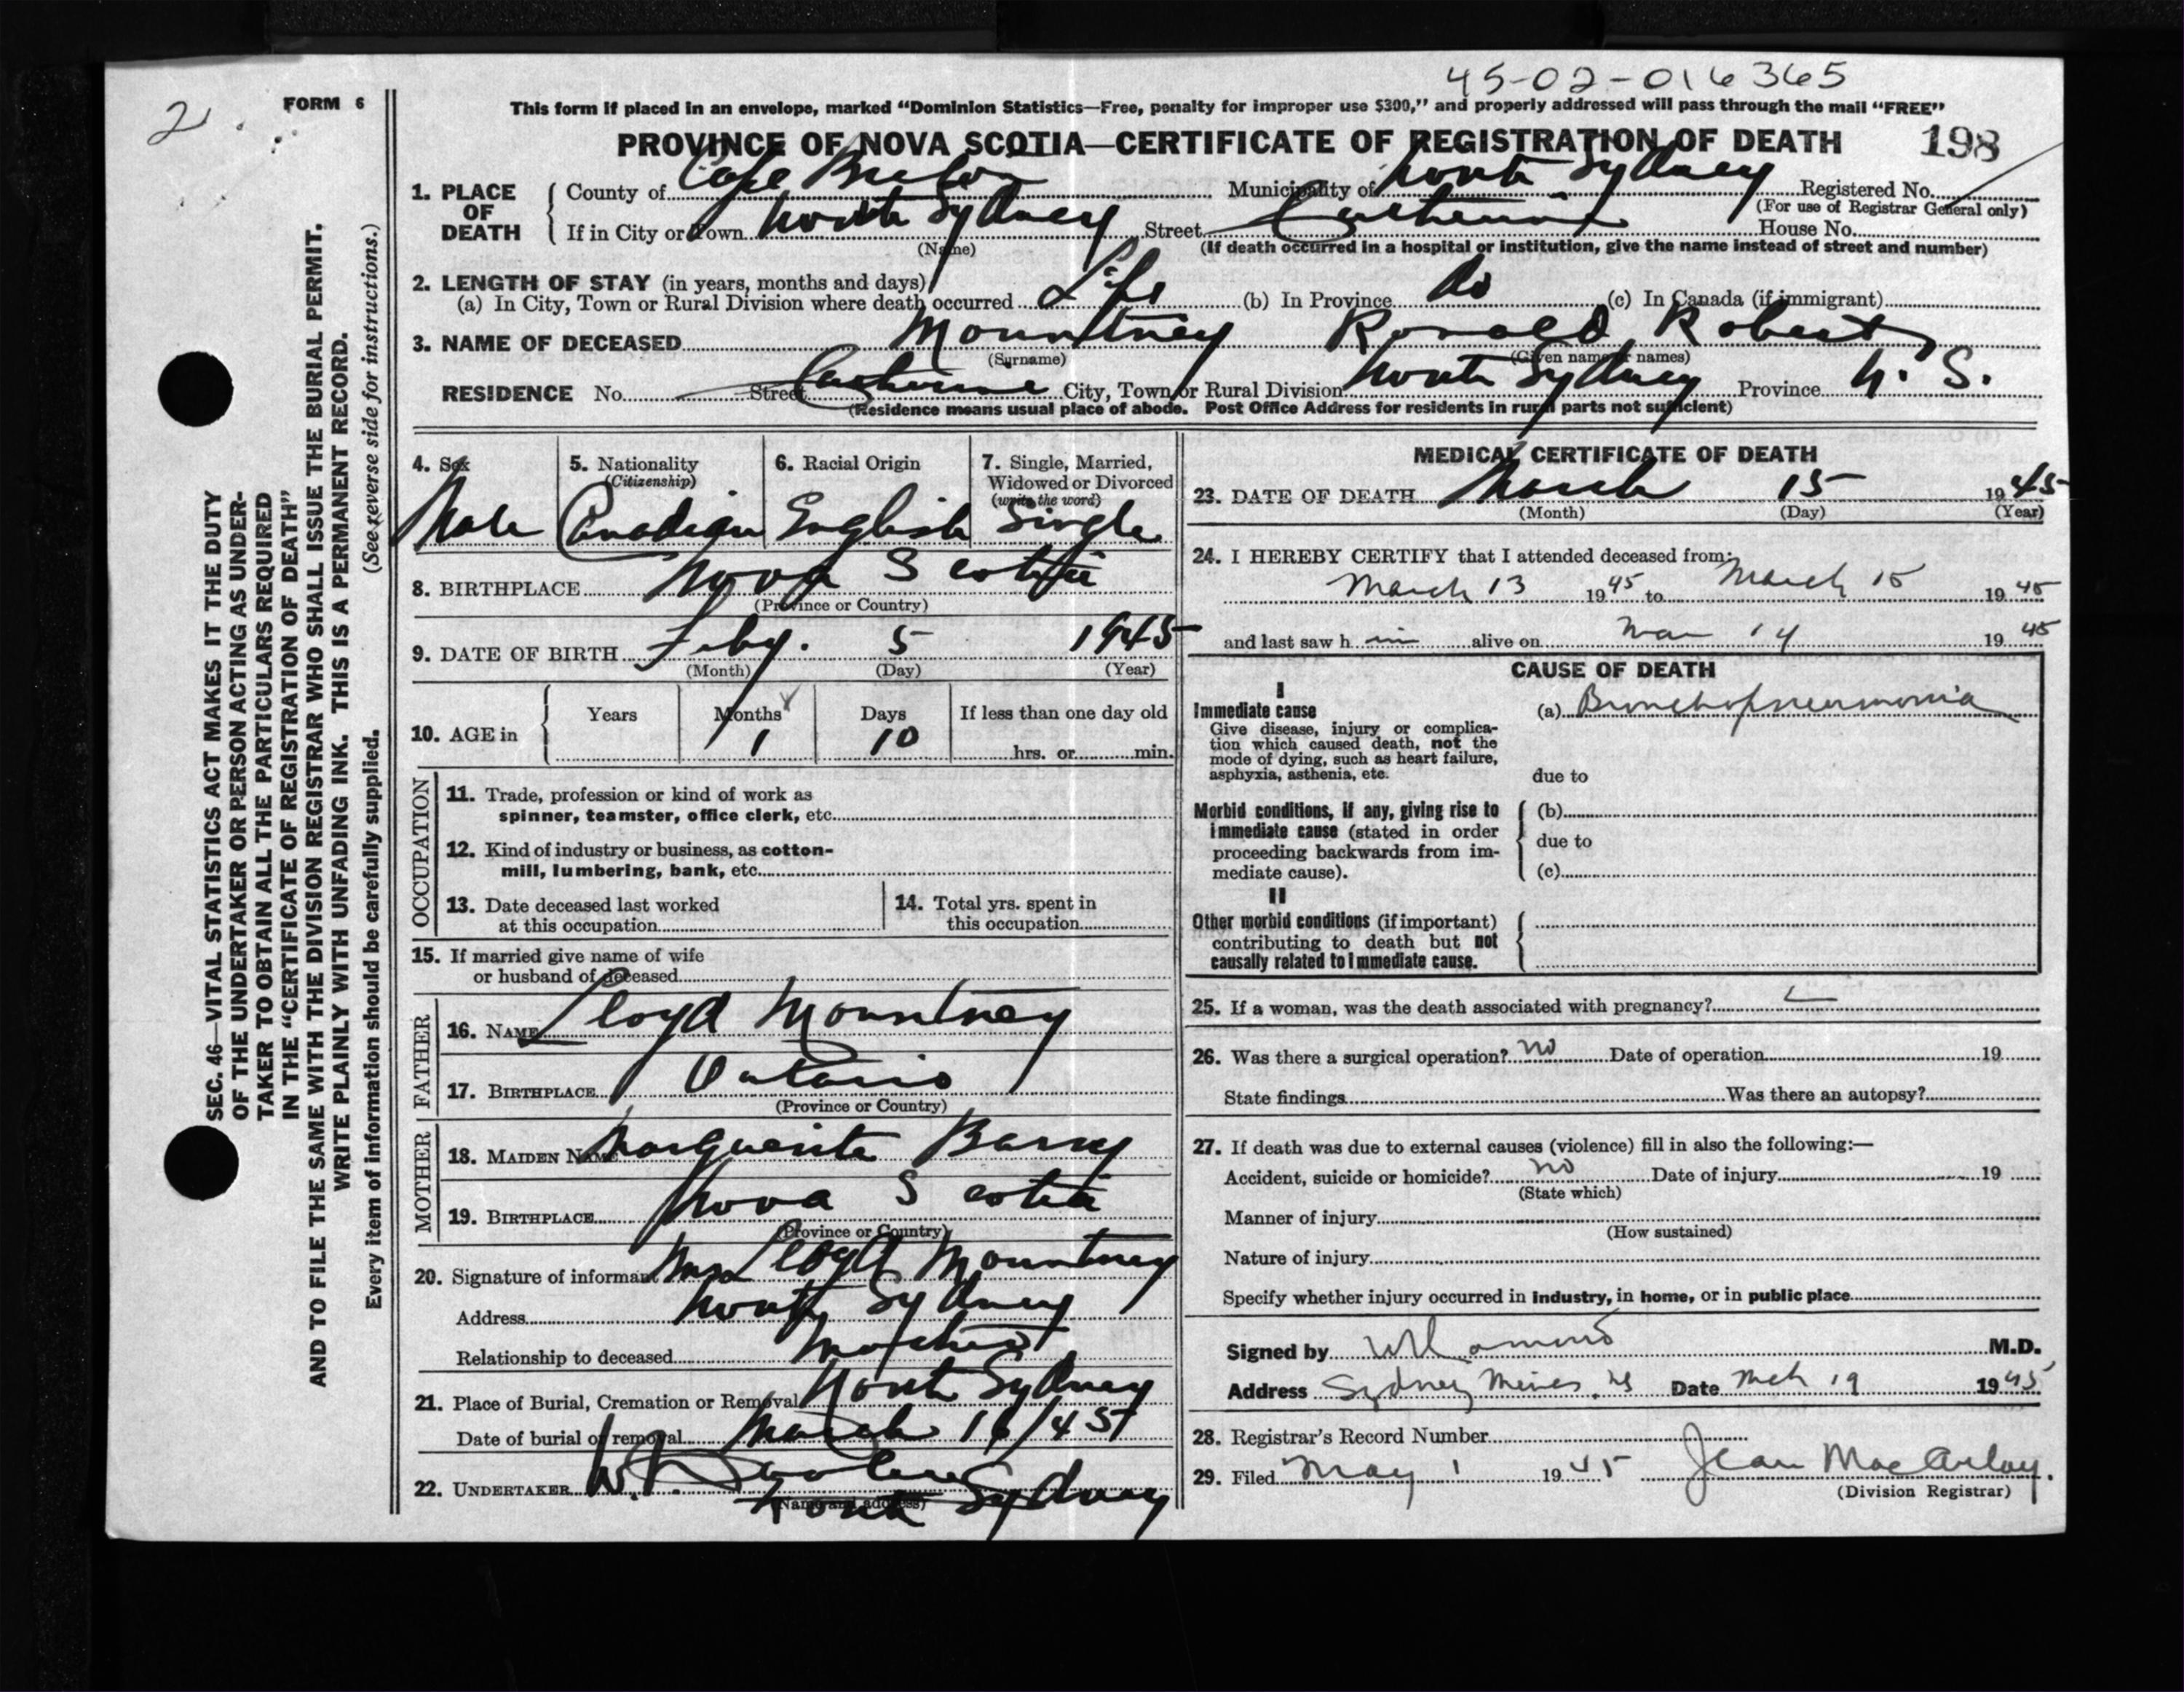 45-02-016365
2
FORM 6
This form if placed in an envelope, marked “Dominion Statistics—Free, penalty for improper use $300,” and properly addressed will pass through the mail “FREE”
PROVINCE OF NOVA SCOTIA—CERTIFICATE OF REGISTRATION OF DEATH
198
SEC. 46—VITAL STATISTICS ACT MAKES IT THE DUTY
OF THE UNDERTAKER OR PERSON ACTING AS UNDER-
TAKER TO OBTAIN ALL THE PARTICULARS REQUIRED
IN THE “CERTIFICATE OF REGISTRATION OF DEATH”
AND TO FILE THE SAME WITH THE DIVISION REGISTRAR WHO SHALL ISSUE THE BURIAL PERMIT.
WRITE PLAINLY WITH UNFADING INK. THIS IS A PERMANENT RECORD.
Every item of information should be carefully supplied. (See reverse side for instructions.)
1. PLACE OF DEATH
County of Cape Breton Municipality of North Sydney Registered No.
(For use of Registrar General only)
If in City or Town North Sydney Street Catherine House No.
(Name) (If death occurred in a hospital or institution, give the name instead of street and number)
2. LENGTH OF STAY (in years, months and days)
(a) In City, Town or Rural Division where death occurred Life (b) In Province do (c) In Canada (if immigrant)
3. NAME OF DECEASED Mountney Ronald Robert
(Surname) (Given name or names)
RESIDENCE No. Street Catherine City, Town or Rural Division North Sydney Province N.S.
(Residence means usual place of abode. Post Office Address for residents in rural parts not sufficient)
4. Sex 5. Nationality 6. Racial Origin 7. Single, Married,
(Citizenship) Widowed or Divorced
(write the word)
Male Canadian English Single
8. BIRTHPLACE Nova Scotia
(Province or Country)
9. DATE OF BIRTH Feby. 5 1945
(Month) (Day) (Year)
10. AGE in Years Months Days If less than one day old
1 10 hrs. or min.
OCCUPATION
11. Trade, profession or kind of work as
spinner, teamster, office clerk, etc.
12. Kind of industry or business, as cotton-
mill, lumbering, bank, etc.
13. Date deceased last worked
at this occupation
14. Total yrs. spent in
this occupation
15. If married give name of wife
or husband of deceased
FATHER
16. NAME Lloyd Mountney
17. BIRTHPLACE Ontario
(Province or Country)
MOTHER
18. MAIDEN NAME Marguerite Barry
19. BIRTHPLACE Nova Scotia
(Province or Country)
20. Signature of informant Mrs Lloyd Mountney
Address North Sydney
Relationship to deceased Mother
21. Place of Burial, Cremation or Removal North Sydney
Date of burial or removal March 16/45
22. UNDERTAKER
(Name and address)
North Sydney
MEDICAL CERTIFICATE OF DEATH
23. DATE OF DEATH March 15 1945
(Month) (Day) (Year)
24. I HEREBY CERTIFY that I attended deceased from:
March 13 1945 to March 15 1945
and last saw h im alive on Mar 14 1945
CAUSE OF DEATH
I
Immediate cause
Give disease, injury or complica-
tion which caused death, not the
mode of dying, such as heart failure,
asphyxia, asthenia, etc.
(a) Bronchopneumonia
due to
Morbid conditions, if any, giving rise to
immediate cause (stated in order
proceeding backwards from im-
mediate cause).
(b)
due to
(c)
II
Other morbid conditions (if important)
contributing to death but not
causally related to immediate cause.
25. If a woman, was the death associated with pregnancy?
26. Was there a surgical operation? no Date of operation 19
State findings Was there an autopsy?
27. If death was due to external causes (violence) fill in also the following:—
Accident, suicide or homicide? no Date of injury 19
(State which)
Manner of injury
(How sustained)
Nature of injury
Specify whether injury occurred in industry, in home, or in public place
Signed by M.D.
Address Sydney Mines NS Date Mch 19 1945
28. Registrar's Record Number
29. Filed May 1 1945 Jean MacAulay.
(Division Registrar)